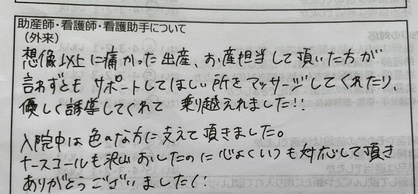 助産師・看護師・看護助手について
(外来)
想像以上に痛かった出産、お産担当して頂いた方が
言わずとも サポートしてほしい所をマッサージしてくれたり、
優しく誘導してくれて 乗り越えれました!!
入院中は色々な方に支えて頂きました。
ナースコールも沢山おしたのに心よくいつも対応して頂き
ありがとうございました!